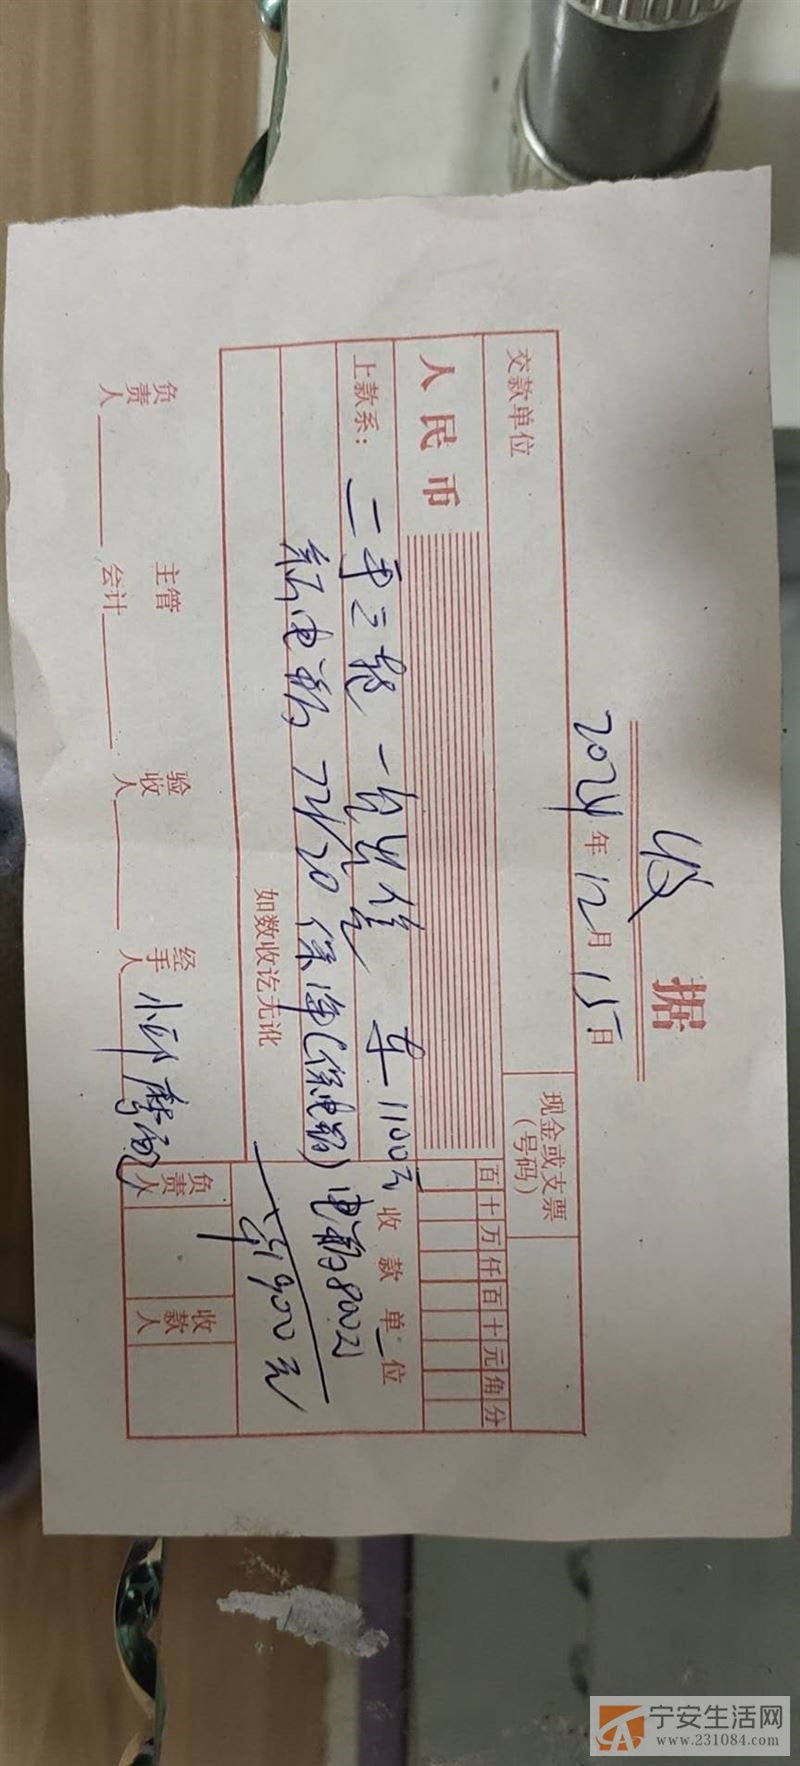 收 据
2024年12月15日
交款单位
现金或支票
(号码)
人民币
百十万仟百十元角分
上款系：二手三轮一台出售 车1100元
收款单位
新电瓶7220保净(保电瓶)电瓶800元
如数收讫无讹
1900元
负责人
主管会计
验收人
经手人 小邱摩配
负责人
收款人
宁安生活网
www.231084.com